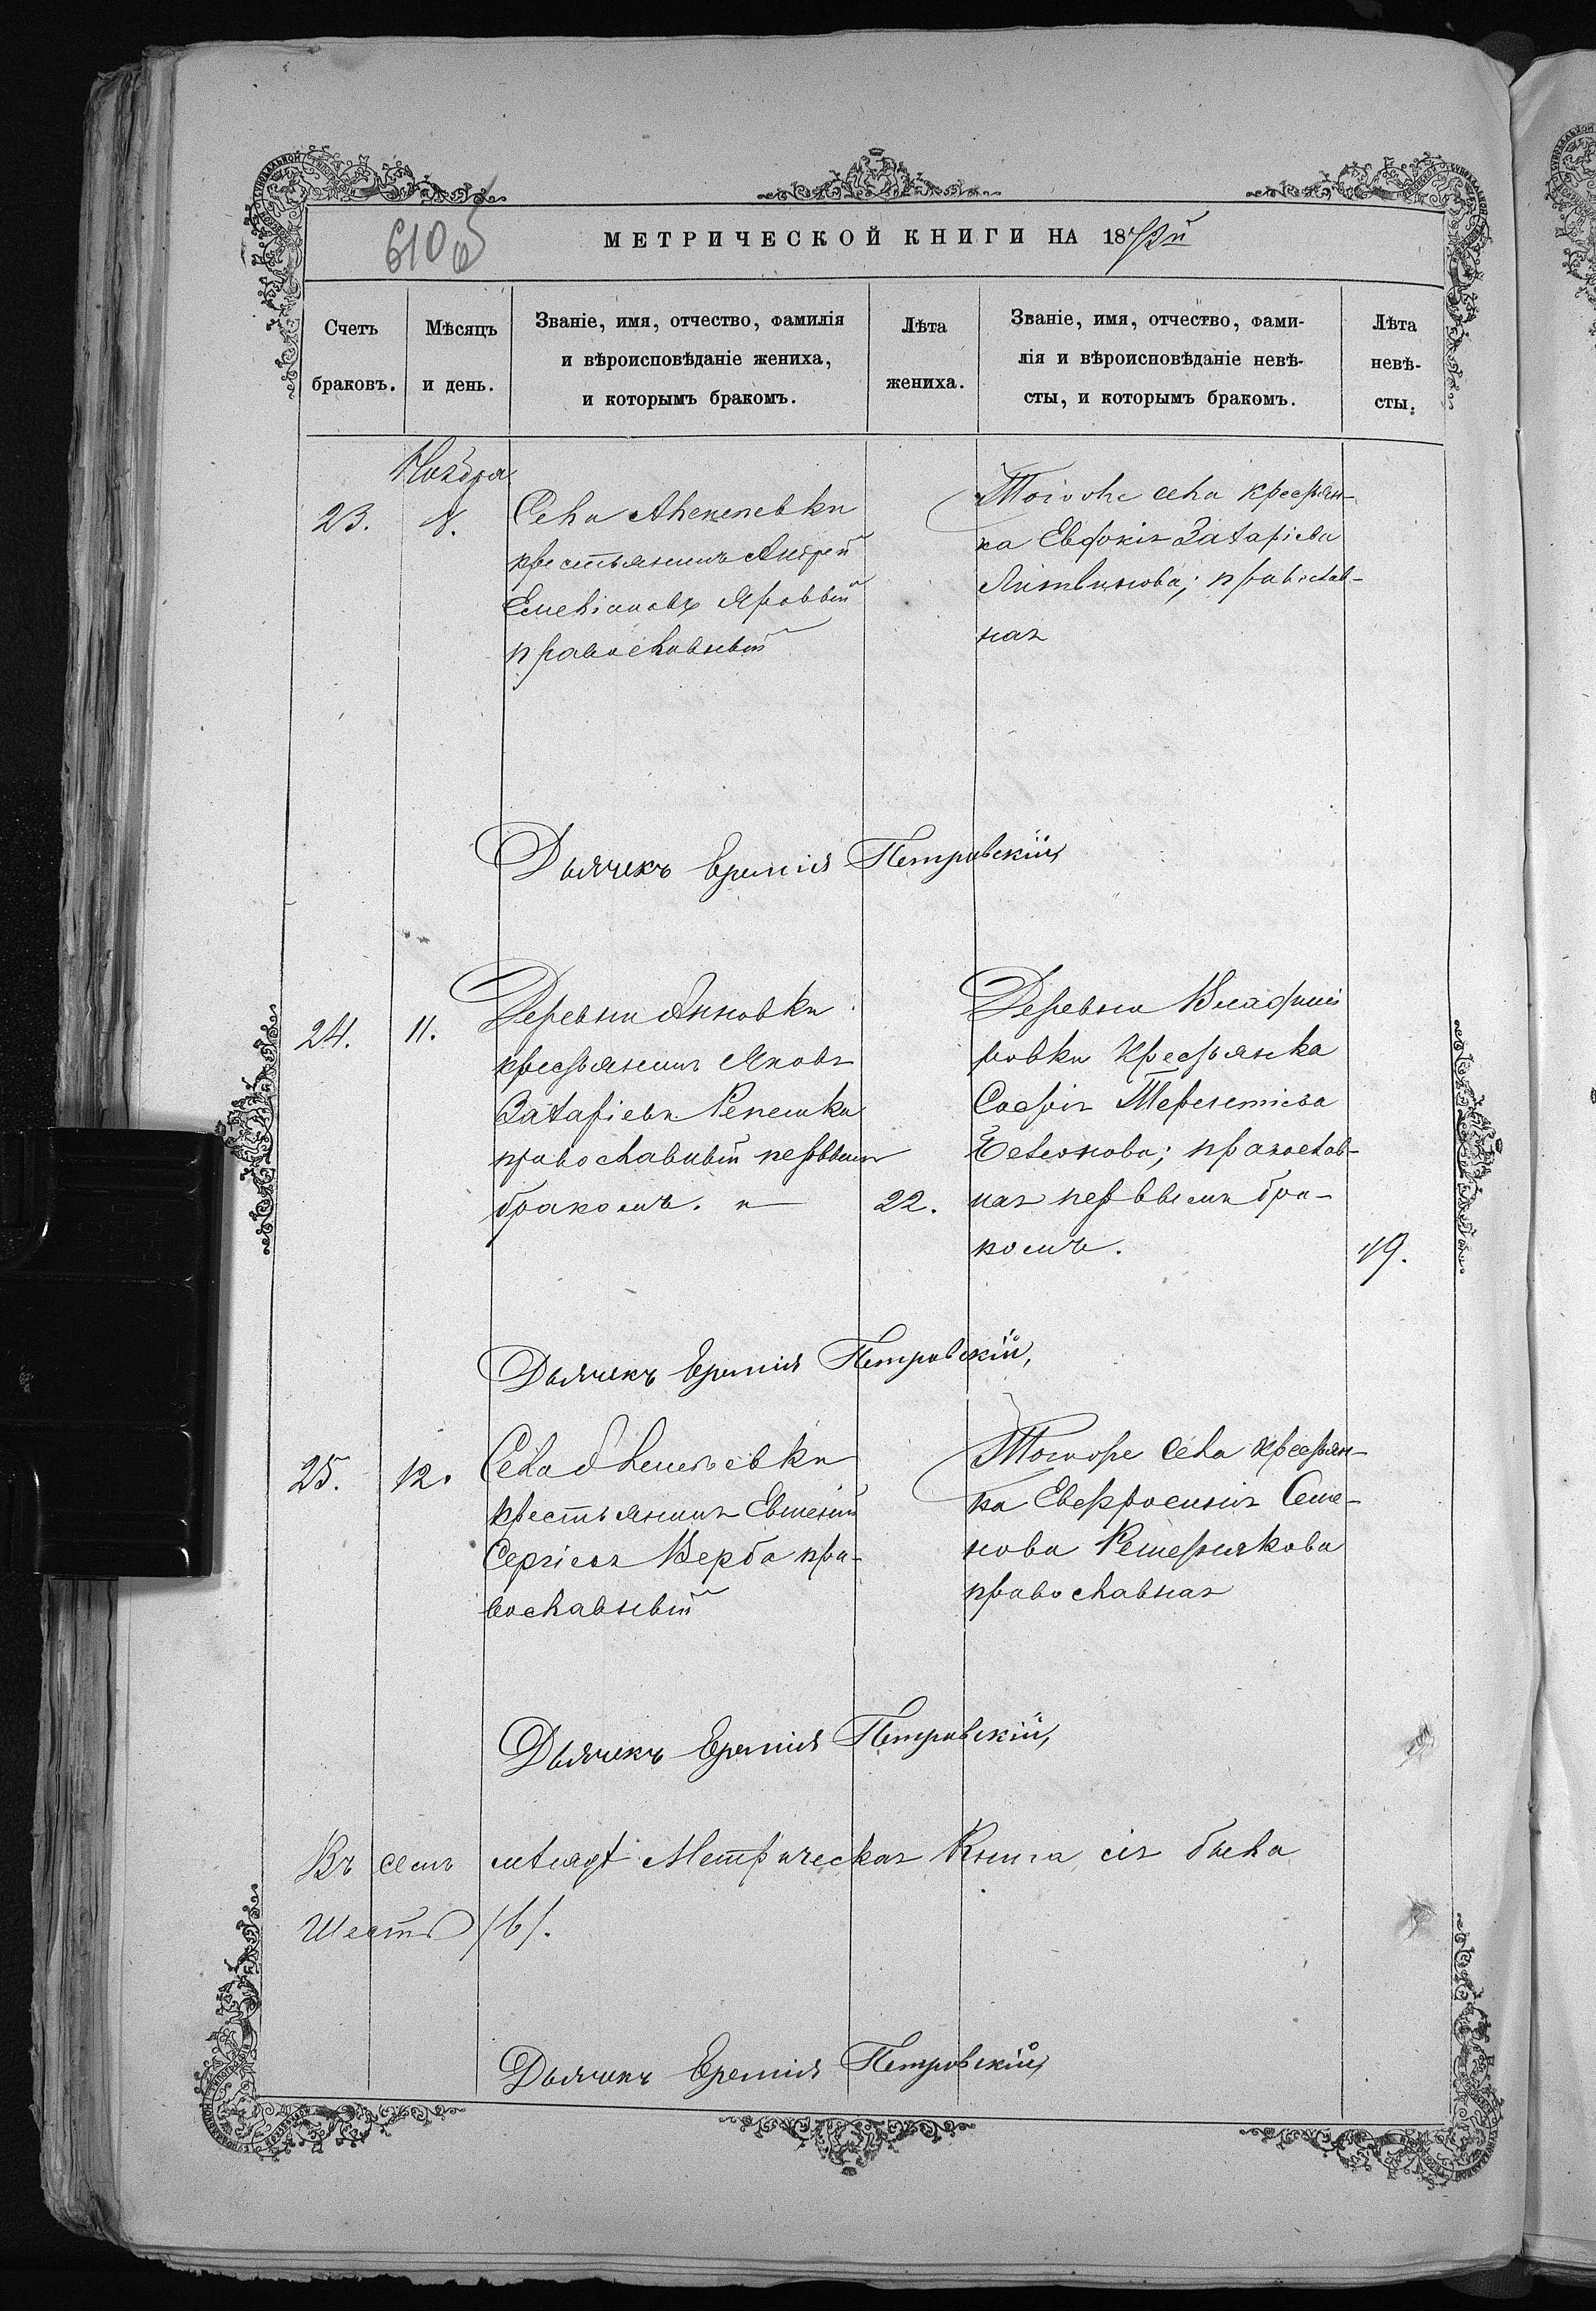 610 об
МЕТРИЧЕСКОЙ КНИГИ НА 1872й
Счетъ
браковъ.
Мѣсяцъ
и день.
Званіе, имя, отчество, фамилія
и вѣроисповѣданіе жениха,
и которымъ бракомъ.
Лѣта
жениха.
Званіе, имя, отчество, фами-
лія и вѣроисповѣданіе невѣ-
сты, и которымъ бракомъ.
Лѣта
невѣ-
сты.
Ноября
23.
8.
Села
крестьянинъ Андрей
Емеліановъ Яровый
православный
Тогоже села крестьян-
ка Евфокія Захаріева
Литвинова; православ-
ная
Дьячекъ Еремія Петровскій,
24.
11.
Деревни Анновки
крестьянинъ Яковъ
Захаріевъ Репешка
православный первымъ
бракомъ. и —
22.
Деревни Владимі
ровки крестьянка
Софія Терентіева
православ-
ная первымъ бра-
комъ.
19.
Дьячекъ Еремія Петровскій,
25.
12.
Села
крестьянинъ Евменій
Сергіевъ Верба пра-
вославный
Тогоже села крестьян-
ка Евфросинія Семе-
нова
православная
Дьячекъ Еремія Петровскій,
Въ семъ мѣстѣ Метрическая Книга сія была
Шесть /6/.
Дьячекъ Еремія Петровскій,